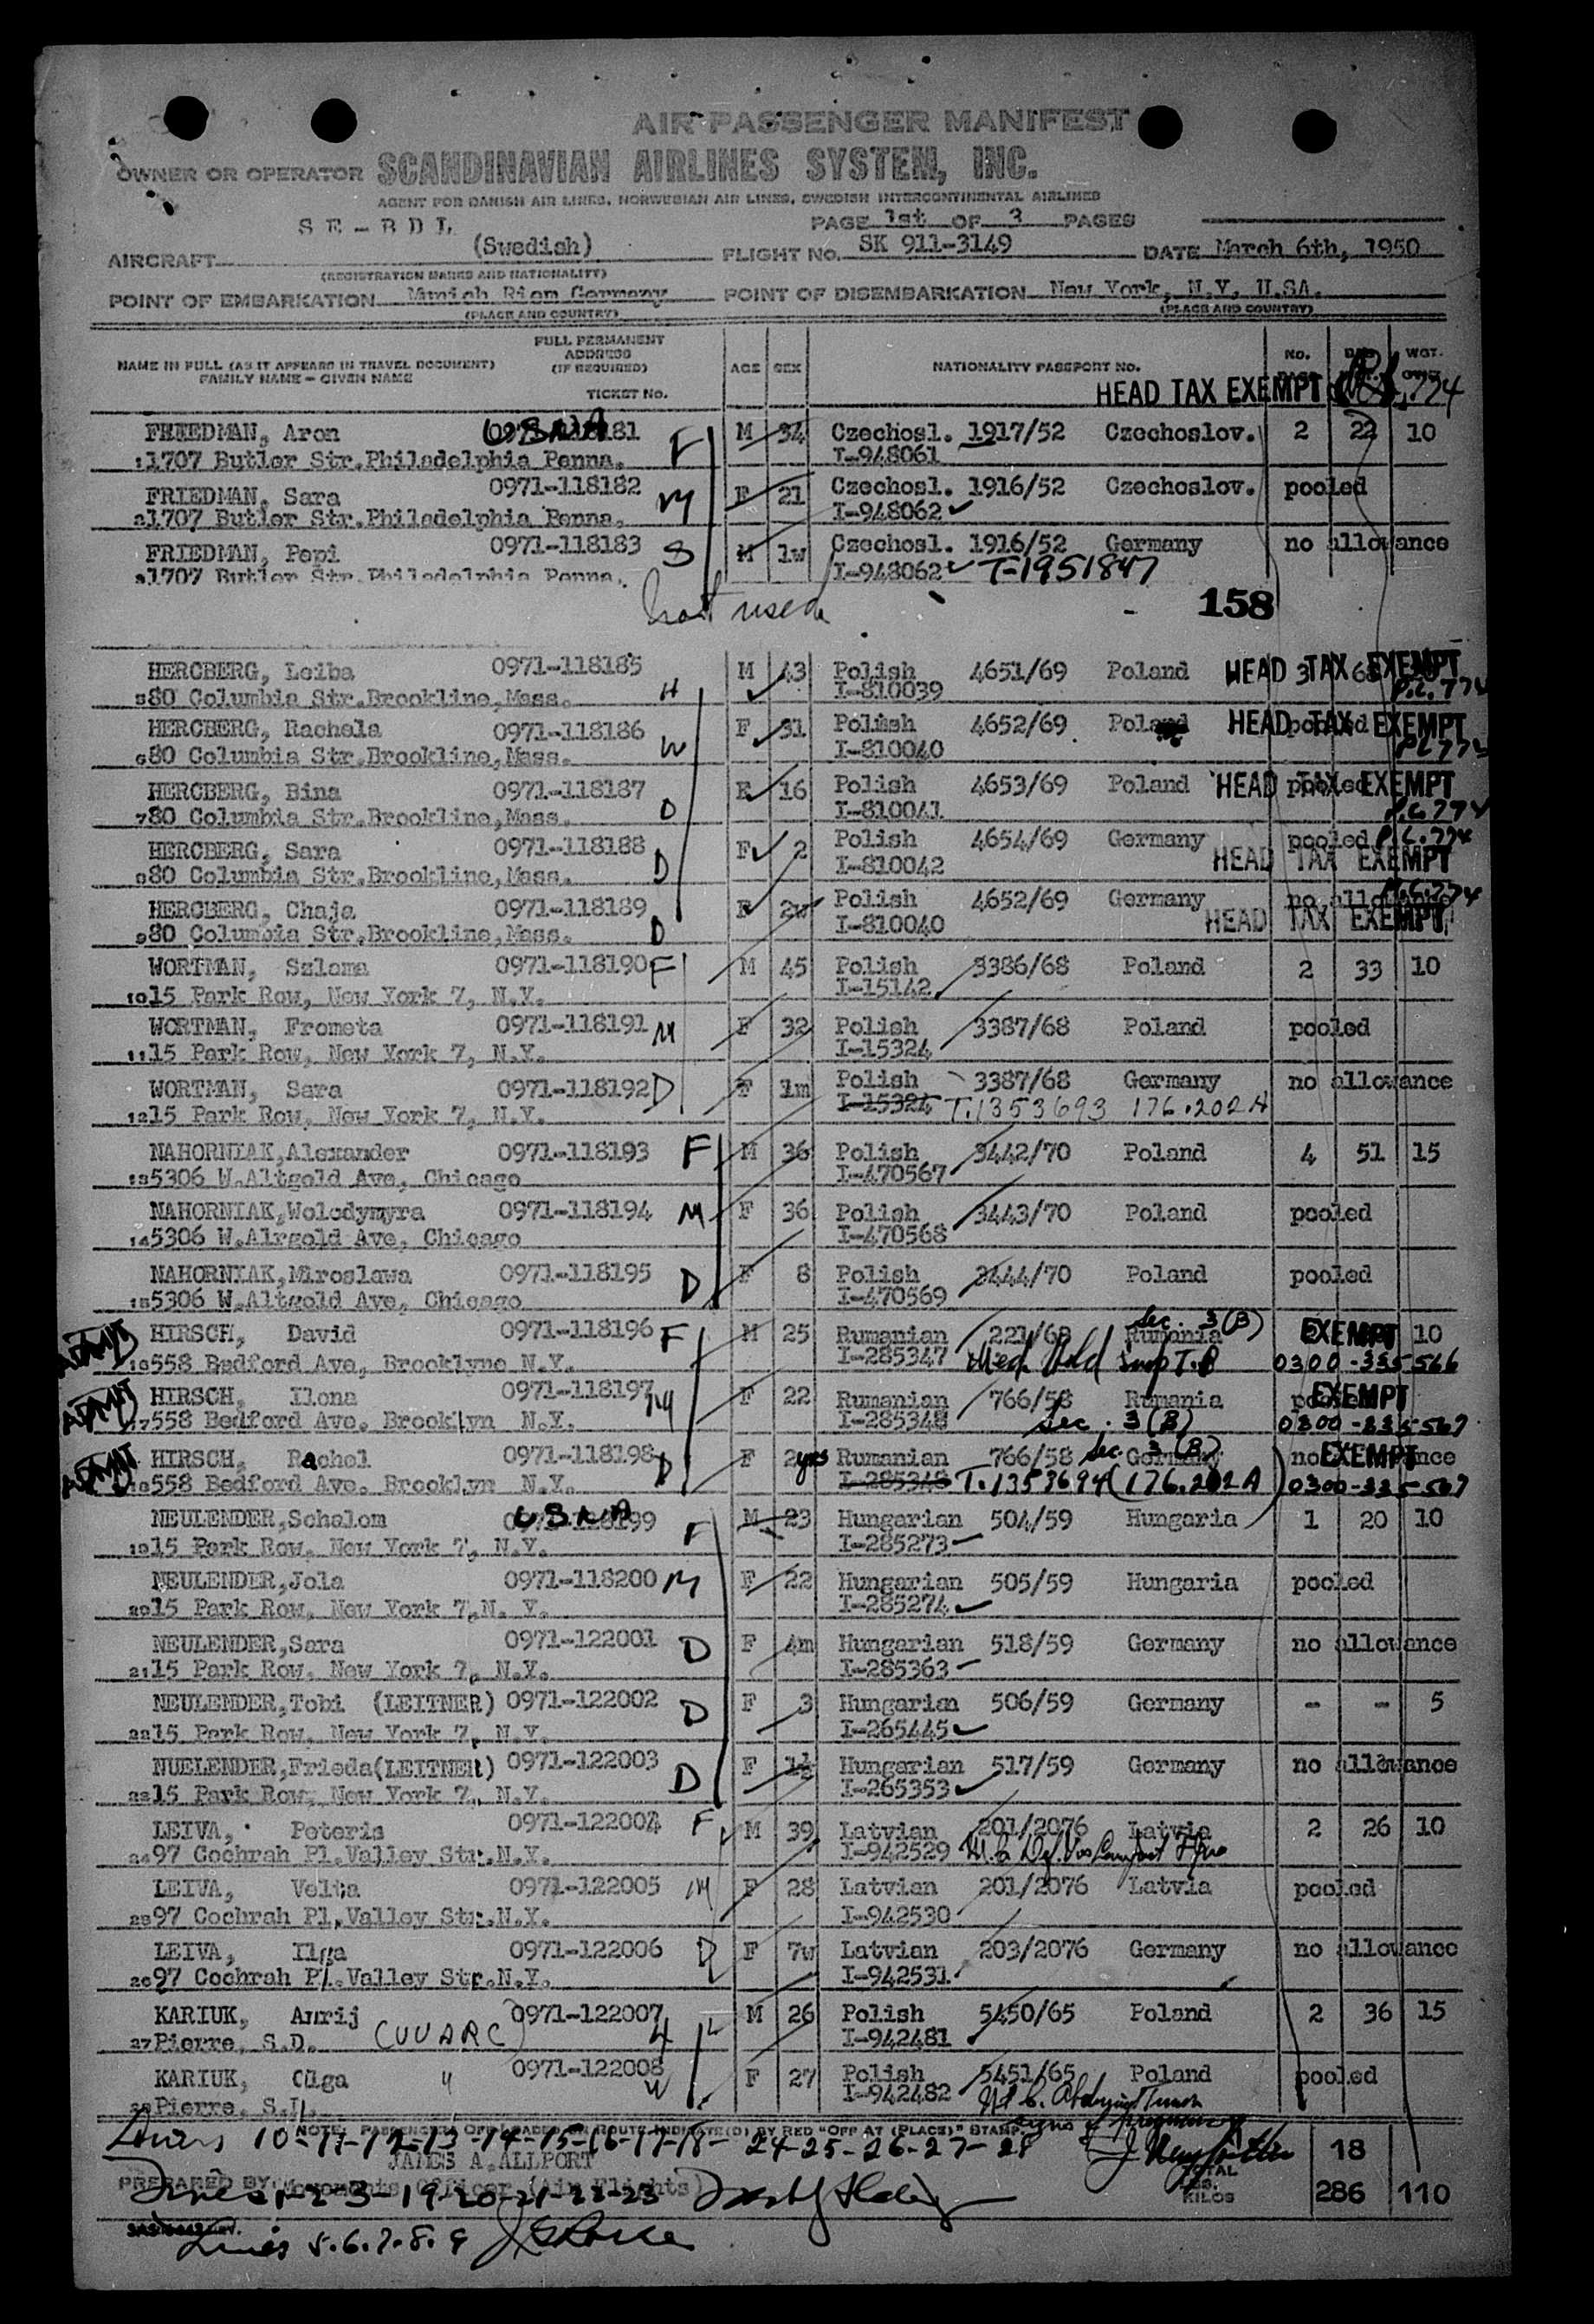 AIR PASSENGER MANIFEST
OWNER OR OPERATOR SCANDINAVIAN AIRLINES SYSTEM, INC.
AGENT FOR DANISH AIR LINES, NORWEGIAN AIR LINES, SWEDISH INTERCONTINENTAL AIRLINES
SE-BDL PAGE 1st OF 3 PAGES
AIRCRAFT (Swedish) FLIGHT NO. SK 911-3149 DATE March 6th, 1950
(REGISTRATION MARKS AND NATIONALITY)
POINT OF EMBARKATION Munich Riem Germany POINT OF DISEMBARKATION New York, N.Y. U.SA.
(PLACE AND COUNTRY) (PLACE AND COUNTRY)
NAME IN FULL (AS IT APPEARS IN TRAVEL DOCUMENT) FAMILY NAME - GIVEN NAME FULL PERMANENT ADDRESS (IF REQUIRED) TICKET No. AGE SEX NATIONALITY PASSPORT NO. No. WGT.
HEAD TAX EXEMPT
FREEDMAN, Aron USNA M 34 Czechosl. 1917/52 Czechoslov. 2 22 10
1 1707 Butler Str.Philadelphia Penna. F I-948061
FRIEDMAN, Sara 0971-118182 M F 21 Czechosl. 1916/52 Czechoslov. pooled
2 1707 Butler Str.Philadelphia Penna. I-948062
FRIEDMAN, Pepi 0971-118183 S M 1w Czechosl. 1916/52 Germany no allowance
3 1707 Butler Str.Philadelphia Penna. I-948062 T-1951847
not used 158
HERCBERG, Leiba 0971-118185 M 43 Polish 4651/69 Poland HEAD TAX EXEMPT
5 80 Columbia Str.Brookline,Mass. H I-810039 P.L.774
HERCBERG, Rachela 0971-118186 F 31 Polish 4652/69 Poland HEAD TAX EXEMPT
6 80 Columbia Str.Brookline,Mass. W I-810040 P.L.774
HERCBERG, Bina 0971-118187 F 16 Polish 4653/69 Poland pooled HEAD TAX EXEMPT
7 80 Columbia Str.Brookline,Mass. D I-810041 P.L.774
HERCBERG, Sara 0971-118188 F 2 Polish 4654/69 Germany pooled P.L.774
8 80 Columbia Str.Brookline,Mass. D I-810042 HEAD TAX EXEMPT
HERCBERG, Chaja 0971-118189 F 2w Polish 4652/69 Germany no allowance P.L.774
9 80 Columbia Str.Brookline,Mass. D I-810040 HEAD TAX EXEMPT
WORTMAN, Szlama 0971-118190 F M 45 Polish 3386/68 Poland 2 33 10
10 15 Park Row, New York 7, N.Y. I-15142
WORTMAN, Frometa 0971-118191 M F 32 Polish 3387/68 Poland pooled
11 15 Park Row, New York 7, N.Y. I-15324
WORTMAN, Sara 0971-118192 D F 1m Polish 3387/68 Germany no allowance
12 15 Park Row, New York 7, N.Y. I-15324 T.1353693 176.202A
NAHORNIAK,Alexander 0971-118193 F M 36 Polish 3442/70 Poland 4 51 15
13 5306 W.Altgold Ave, Chicago I-470567
NAHORNIAK,Wolodymyra 0971-118194 M F 36 Polish 3443/70 Poland pooled
14 5306 W.Airgold Ave, Chicago I-470568
NAHORNIAK,Miroslawa 0971-118195 D F 8 Polish 3444/70 Poland pooled
15 5306 W.Altgold Ave, Chicago I-470569
ADMIT HIRSCH, David 0971-118196 F M 25 Rumanian 221/68 Rumania Sec. 3(B) EXEMPT 10
16 558 Bedford Ave, Brooklyne N.Y. I-285347 Med Hold susp T.B 0300-335566
ADMIT HIRSCH, Ilona 0971-118197 M F 22 Rumanian 766/58 Rumania EXEMPT
17 558 Bedford Ave. Brooklyn N.Y. I-285348 Sec. 3(B) 0300-335567
ADMIT HIRSCH, Rachel 0971-118198 D F 2yrs Rumanian 766/58 Sec 3(B) Germany EXEMPT
18 558 Bedford Ave. Brooklyn N.Y. I-285348 T.1353694 (176.202A) 0300-335567
NEULENDER,Scholom USNA M 23 Hungarian 504/59 Hungaria 1 20 10
19 15 Park Row. New York 7, N.Y. F I-285273
NEULENDER,Jola 0971-118200 M F 22 Hungarian 505/59 Hungaria pooled
20 15 Park Row, New York 7,N. Y. I-285274
NEULENDER,Sara 0971-122001 D F 4m Hungarian 518/59 Germany no allowance
21 15 Park Row. New York 7, N.Y. I-285363
NEULENDER,Tobi (LEITNER) 0971-122002 D F 3 Hungarian 506/59 Germany - - 5
22 15 Park Row. New York 7, N.Y. I-265445
NUELENDER,Frieda(LEITNER) 0971-122003 D F 1½ Hungarian 517/59 Germany no allowance
23 15 Park Row, New York 7, N.Y. I-265353
LEIVA, Peteris 0971-122004 F M 39 Latvian 201/2076 Latvia 2 26 10
24 97 Cochrah Pl.Valley Str.N.Y. I-942529
LEIVA, Velta 0971-122005 M F 28 Latvian 201/2076 Latvia pooled
25 97 Cochrah Pl.Valley Str.N.Y. I-942530
LEIVA, Ilga 0971-122006 D F 7w Latvian 203/2076 Germany no allowance
26 97 Cochrah Pl.Valley Str.N.Y. I-942531
KARIUK, Anrij 0971-122007 M 26 Polish 5450/65 Poland 2 36 15
27 Pierre, S.D. (UUARC) H I-942481
KARIUK, Olga " 0971-122008 W F 27 Polish 5451/65 Poland pooled
28 Pierre. S.D. I-942482
NOTE: PASSENGERS OFF LOADED EN ROUTE INDICATE(D) BY RED "OFF AT (PLACE)" STAMP.
Lines 10-11-12-13-14-15-16-17-18- 24-25-26-27-28 18
JAMES A.ALLPORT TOTAL
PREPARED BY Movements Officer (Air Flights) KILOS 286 110
Lines 1-2-3-19-20-21-22-23
Lines 5.6.7.8.9